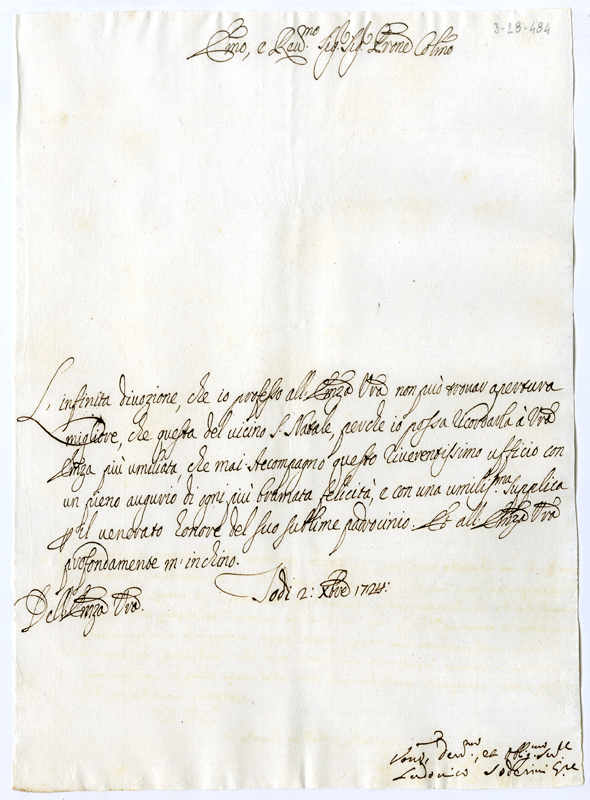 3-18-484
Emo, e Reu.mo Sig. Sig. Prone Colmo
L'infinita diuozione, che io professo all'Emza Vra non può trouar apertura
migliore, che questa del uicino S. Natale, perche io possa ricordarla à Vra
Emza più umiliata, che mai. Accompagno questo riuerentissimo ufficio con
un pieno augurio di ogni più bramata felicità, e con una umilis.ma supplica
per il uenerato honore del suo sublime padrocinio. Et all'Emza Vra
profondamente m'inchino.
Todi 2: Xbre 1724:
Dell'Emza Vra.
deu.mo, et obblig.mo
Lodouico Soderini